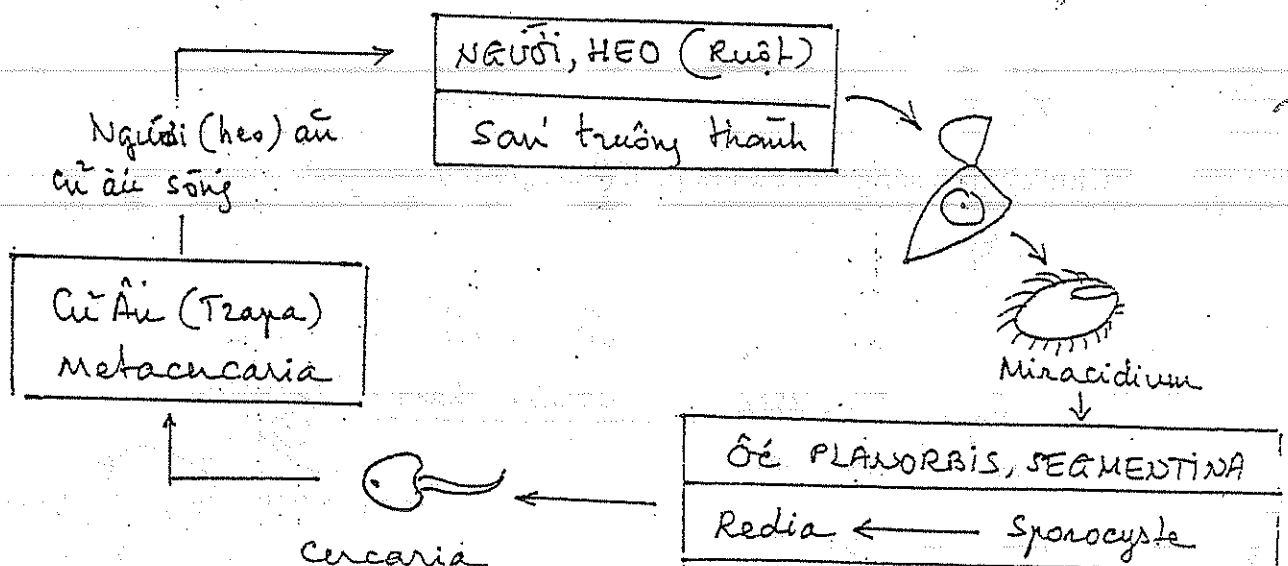 NGƯỜI, HEO (Ruột)
Sán trưởng thành
Người (heo) ăn
củ ấu sống
Củ Ấu (Trapa)
Metacercaria
Miracidium
Ốc PLANORBIS, SEGMENTINA
Redia ← Sporocyste
Cercaria